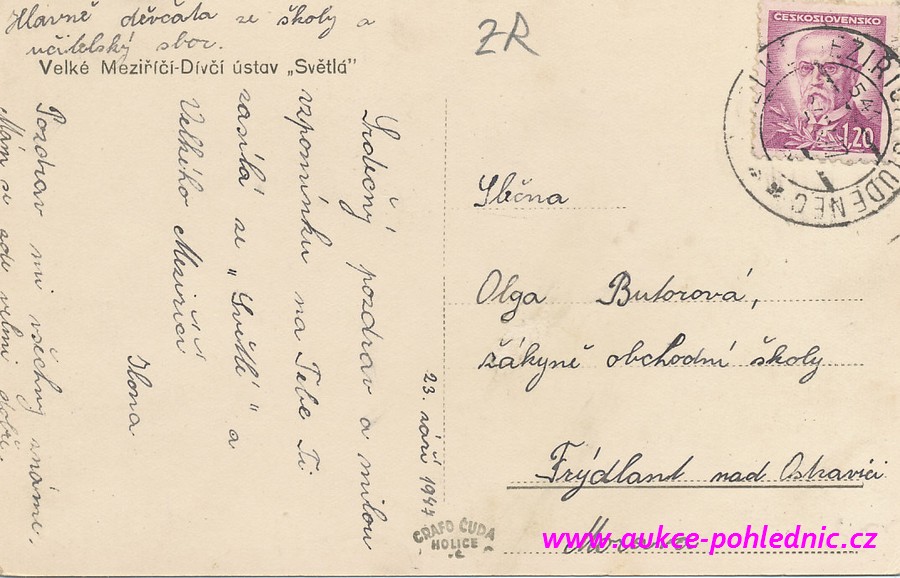 Hlavně děvčata ze školy a
učitelský sbor.
ZR
Velké Meziříčí-Dívčí ústav „Světlá"
23. září 1947
Srdečný pozdrav a milou
vzpomínku na Tebe Ti
zasílá ze „Světlé" a
Velkého Meziříčí
Ilona
Pozdrav mi všechny známé.
Mám se zde velmi dobře.
ČESKOSLOVENSKO
1,20
STUDENEC
Slečna
Olga Butorová,
žákyně obchodní školy
Frýdlant nad Ostravicí
Morava
GRAFO ČUDA
HOLICE
www.aukce-pohlednic.cz